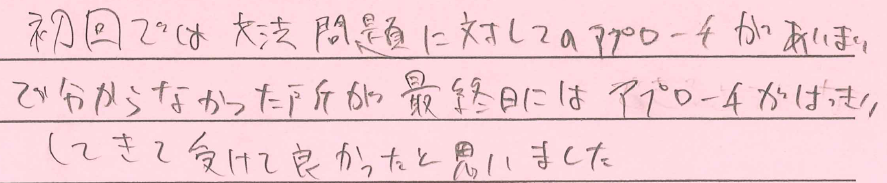 初回では文法問題に対してのアプローチがあいまい
で分からなかった所が最終日にはアプローチがはっきり
してきて受けて良かったと思いました